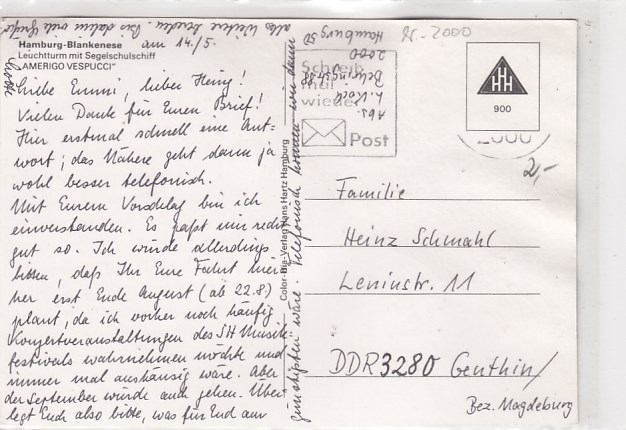 Hamburg-Blankenese
Leuchtturm mit Segelschulschiff
"AMERIGO VESPUCCI"
am 14/5.
Liebe Emmi, lieber Heinz!
Vielen Dank für Euren Brief!
Hier erstmal schnell eine Ant-
wort; das Nähere geht dann ja
wohl besser telefonisch.
Mit Eurem Vorschlag bin ich
einverstanden. Es paßt mir recht
gut so. Ich würde allerdings
bitten, daß Ihr Eure Fahrt hier
her erst Ende August (ab 22.8)
plant, da ich vorher noch häufig
Konzertveranstaltungen des SH Musik
festivals wahrnehmen möchte und
immer mal aushäusig wäre. Aber
der September würde auch gehen. Über
legt Euch also bitte, was für Euch am
günstigsten wäre. Telefonisch können wir dann
alles Weitere bereden. Bis dahin viele Grüße
Color-Dia-Verlag Hans Hartz Hamburg
Abs.
L. Koch
Behringstr. 88
2000
Hamburg 50
Schreib
mal
wieder
Post
HHH
900
2,-
Familie
Heinz Schmahl
Leninstr. 11
DDR 3280 Genthin/
Bez. Magdeburg